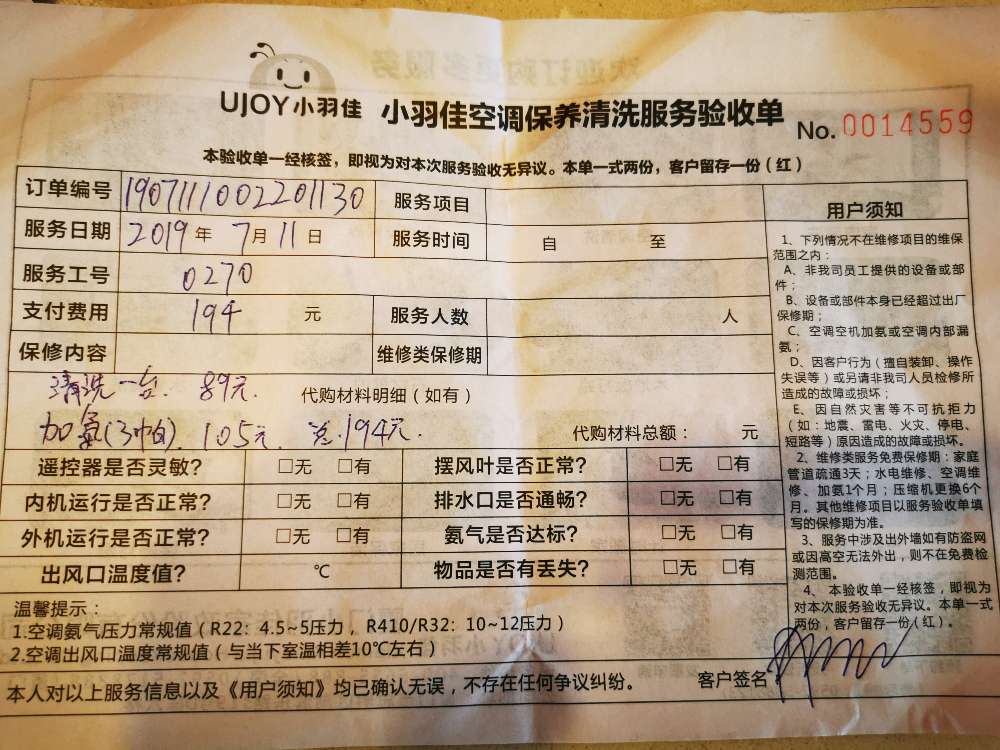 UJOY小羽佳 小羽佳空调保养清洗服务验收单 No. 0014559
本验收单一经核签，即视为对本次服务验收无异议。本单一式两份，客户留存一份（红）
订单编号 1907111002201130 服务项目
服务日期 2019 年 7 月 11 日 服务时间 自 至
服务工号 0270
支付费用 194 元 服务人数 人
保修内容 维修类保修期
清洗一台 89元. 代购材料明细（如有）
加氨(3帕). 105元. 总.194元. 代购材料总额： 元
遥控器是否灵敏? □无 □有 摆风叶是否正常? □无 □有
内机运行是否正常? □无 □有 排水口是否通畅? □无 □有
外机运行是否正常? □无 □有 氨气是否达标? □无 □有
出风口温度值? ℃ 物品是否有丢失? □无 □有
温馨提示：
1.空调氨气压力常规值（R22：4.5~5压力，R410/R32：10~12压力）
2.空调出风口温度常规值（与当下室温相差10℃左右）
本人对以上服务信息以及《用户须知》均已确认无误，不存在任何争议纠纷。 客户签名
用户须知
1、下列情况不在维修项目的维保
范围之内：
A、非我司员工提供的设备或部
件；
B、设备或部件本身已经超过出厂
保修期；
C、空调空机加氨或空调内部漏
氨；
D、因客户行为（擅自装卸、操作
失误等）或另请非我司人员检修所
造成的故障或损坏；
E、因自然灾害等不可抗拒力
（如：地震、雷电、火灾、停电、
短路等）原因造成的故障或损坏。
2、维修类服务免费保修期：家庭
管道疏通3天；水电维修、空调维
修、加氨1个月；压缩机更换6个
月。其他维修项目以服务验收单填
写的保修期为准。
3、服务中涉及出外墙如有防盗网
或因高空无法外出，则不在免费检
测范围。
4、本验收单一经核签，即视为
对本次服务验收无异议。本单一式
两份，客户留存一份（红）。